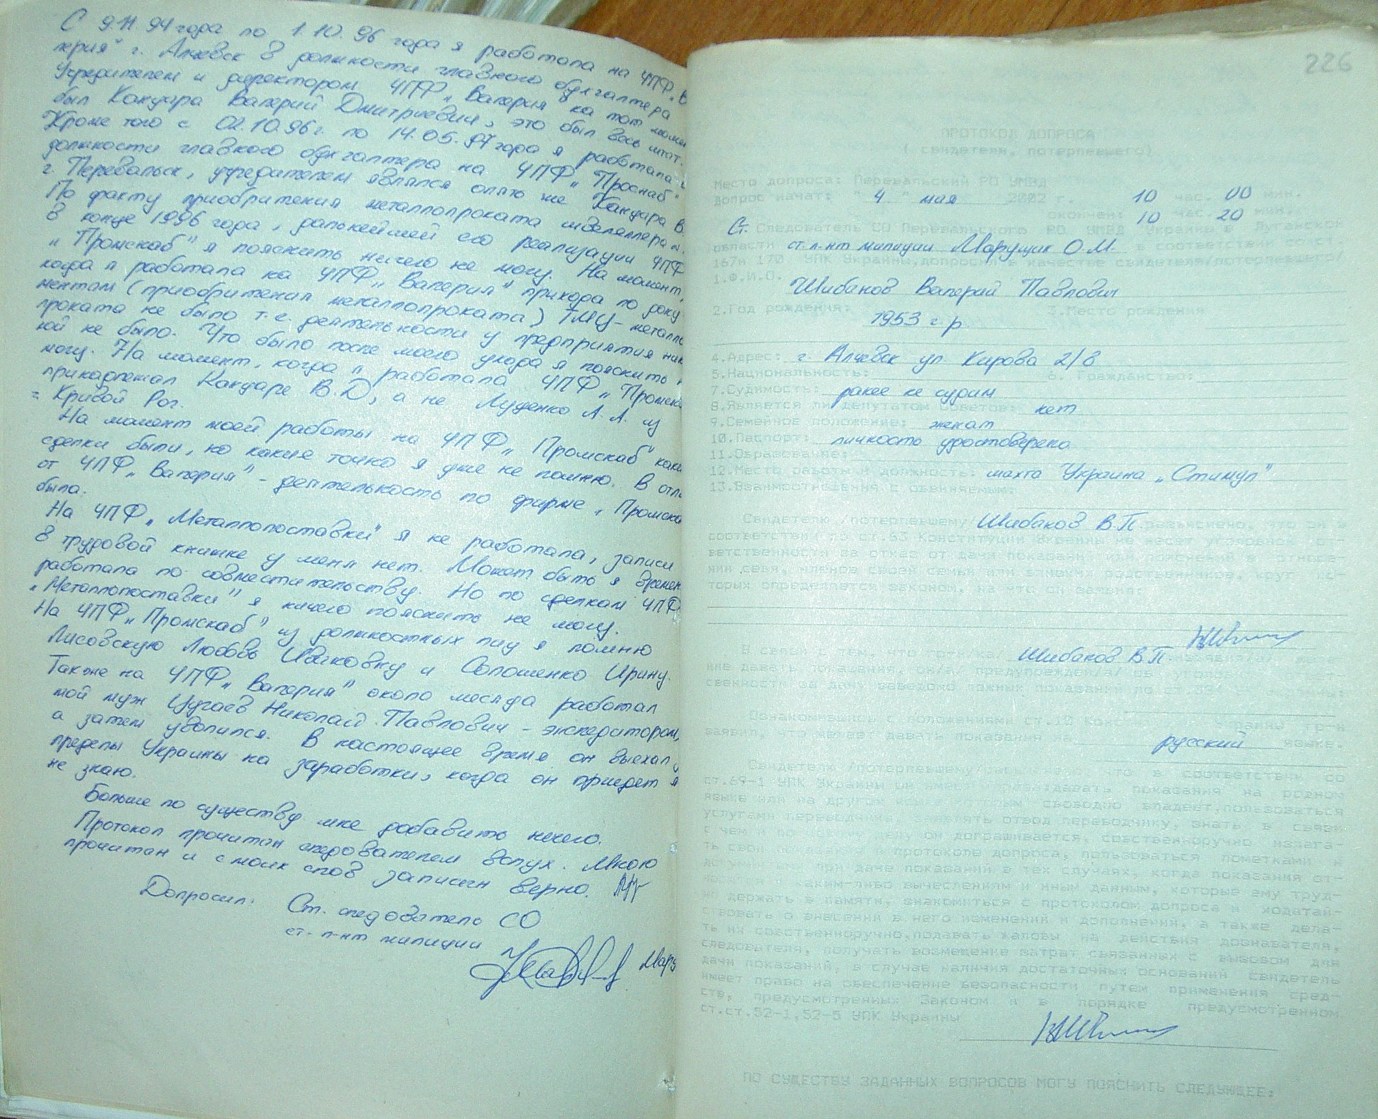 С 9.11.94 года по 1.10.96 года я работала на ЧПФ „В
лерия" г. Алчевск в должности главного бухгалтера
Учредителем и директором ЧПФ „Валерия" на тот момен
был Кандара Валерий Дмитриевич, это был весь штат.
Кроме того с 02.10.96г. по 14.05.97 года я работала
должности главного бухгалтера на ЧПФ „Промснаб"
г. Перевальск, учредителем являлся опять же Кандара В.
По факту приобретения металлопроката швеллера
в конце 1996 года, дальнейшей его реализации ЧПФ
„Промснаб" я пояснить ничего не могу. На момент,
когда я работала на ЧПФ „Валерия" прихода по доку
ментам (приобретения металлопроката) ТМЦ - металло
проката не было т.е. деятельности у предприятия ник
кой не было. Что было после моего ухода я пояснить н
могу. На момент, когда я работала ЧПФ „Промсна
принадлежал Кандаре В.Д, а не Луденко Л.А. из
г. Кривой Рог.
На момент моей работы на ЧПФ „Промснаб" каки
сделки были, но какие точно я уже не помню. В отли
от ЧПФ „Валерия" - деятельность по фирме „Промсна
была.
На ЧПФ „Металлопоставки" я не работала, записи
в трудовой книжке у меня нет. Может быть я времен
работала по совместительству. Но по сделкам ЧПФ
„Металлопоставки" я ничего пояснить не могу.
На ЧПФ „Промснаб" из должностных лиц я помню
Лисовскую Любовь Ивановну и Солошенко Ирину.
Также на ЧПФ „Валерия" около месяца работал
мой муж Цугаев Николай Павлович - экспедитором,
а затем уволился. В настоящее время он выехал з
пределы Украины на заработки, когда он приедет я
не знаю.
Больше по существу мне добавить нечего.
Протокол прочитан следователем вслух. Мною
прочитан и с моих слов записан верно.
Допросил: Ст. следователь СО
ст. л-нт милиции Мару
226
ПРОТОКОЛ ДОПРОСА
( свидетеля, потерпевшего)
Место допроса: Перевальский РО УМВД
Допрос начат: " 4 " мая 2002 г. 10 час. 00 мин.
окончен: 10 час. 20 мин.
Ст. Следователь СО Перевальского РО УМВД Украины в Луганской
области ст. л-нт милиции Марущак О.М. в соответствии со ст.
167и 170 УПК Украины, допросил в качестве свидетеля/потерпевшего/
1.Ф.И.О. Шибанов Валерий Павлович
2.Год рождения: 1953 г.р. 3.Место рождения
4.Адрес: г. Алчевск ул Кирова 2/8
5.Национальность: 6. Гражданство:
7.Судимость: ранее не судим
8.Является ли депутатом Советов: нет
9.Семейное положение: женат
10.Паспорт: личность удостоверена
11.Образование:
12.Место работы и должность: шахта Украина „Стимул"
13.Взаимоотношения с обвиняемым:
Свидетелю /потерпевшему/ Шибанов В.П. разъяснено, что он в
соответствии со ст.63 Конституции Украины не несет уголовной от-
ветственности за отказ от дачи показаний или пояснений в отноше-
нии себя, членов своей семьи или близких родственников, круг ко-
торых определяется законом, на что он заявил:
В связи с тем, что Шибанов В.П.
ние давать показания, он/а/ предупрежден/а/ об уголов ответ-
ственности за дачу заведомо ложных показаний по ст.
Ознакомившись с положениями ст.10 Конституции Украины гр-н
заявил, что желает давать показания на русский языке.
Свидетелю /потерпевшему/ что, в соответствии со
ст.69-1 УПК Украины он имеет право: давать показания на родном
языке или на другом , которым свободно владеет, пользоваться
услугами переводчика, заявлять отвод переводчику, знать в связи
с чем и по какому делу он допрашивается, собственноручно излага-
ть свои показания в протоколе допроса, пользоваться пометками и
документами при даче показаний в тех случаях, когда показания от-
носятся к каким-либо вычислениям и иным данным, которые ему труд-
но держать в памяти, знакомиться с протоколом допроса и ходатай-
ствовать о внесении в него изменений и дополнений, а также дела-
ть их собственноручно, подавать жалобы на действия дознавателя,
следователя, получать возмещение затрат связанных с вызовом для
дачи показаний, в случае наличия достаточных оснований свидетель
имеет право на обеспечение безопасности путем применения сред-
ств, предусмотренных Законом и в порядке предусмотренном
ст.ст.52-1,52-5 УПК Украины
ПО СУЩЕСТВУ ЗАДАННЫХ ВОПРОСОВ МОГУ ПОЯСНИТЬ СЛЕДУЮЩЕЕ: